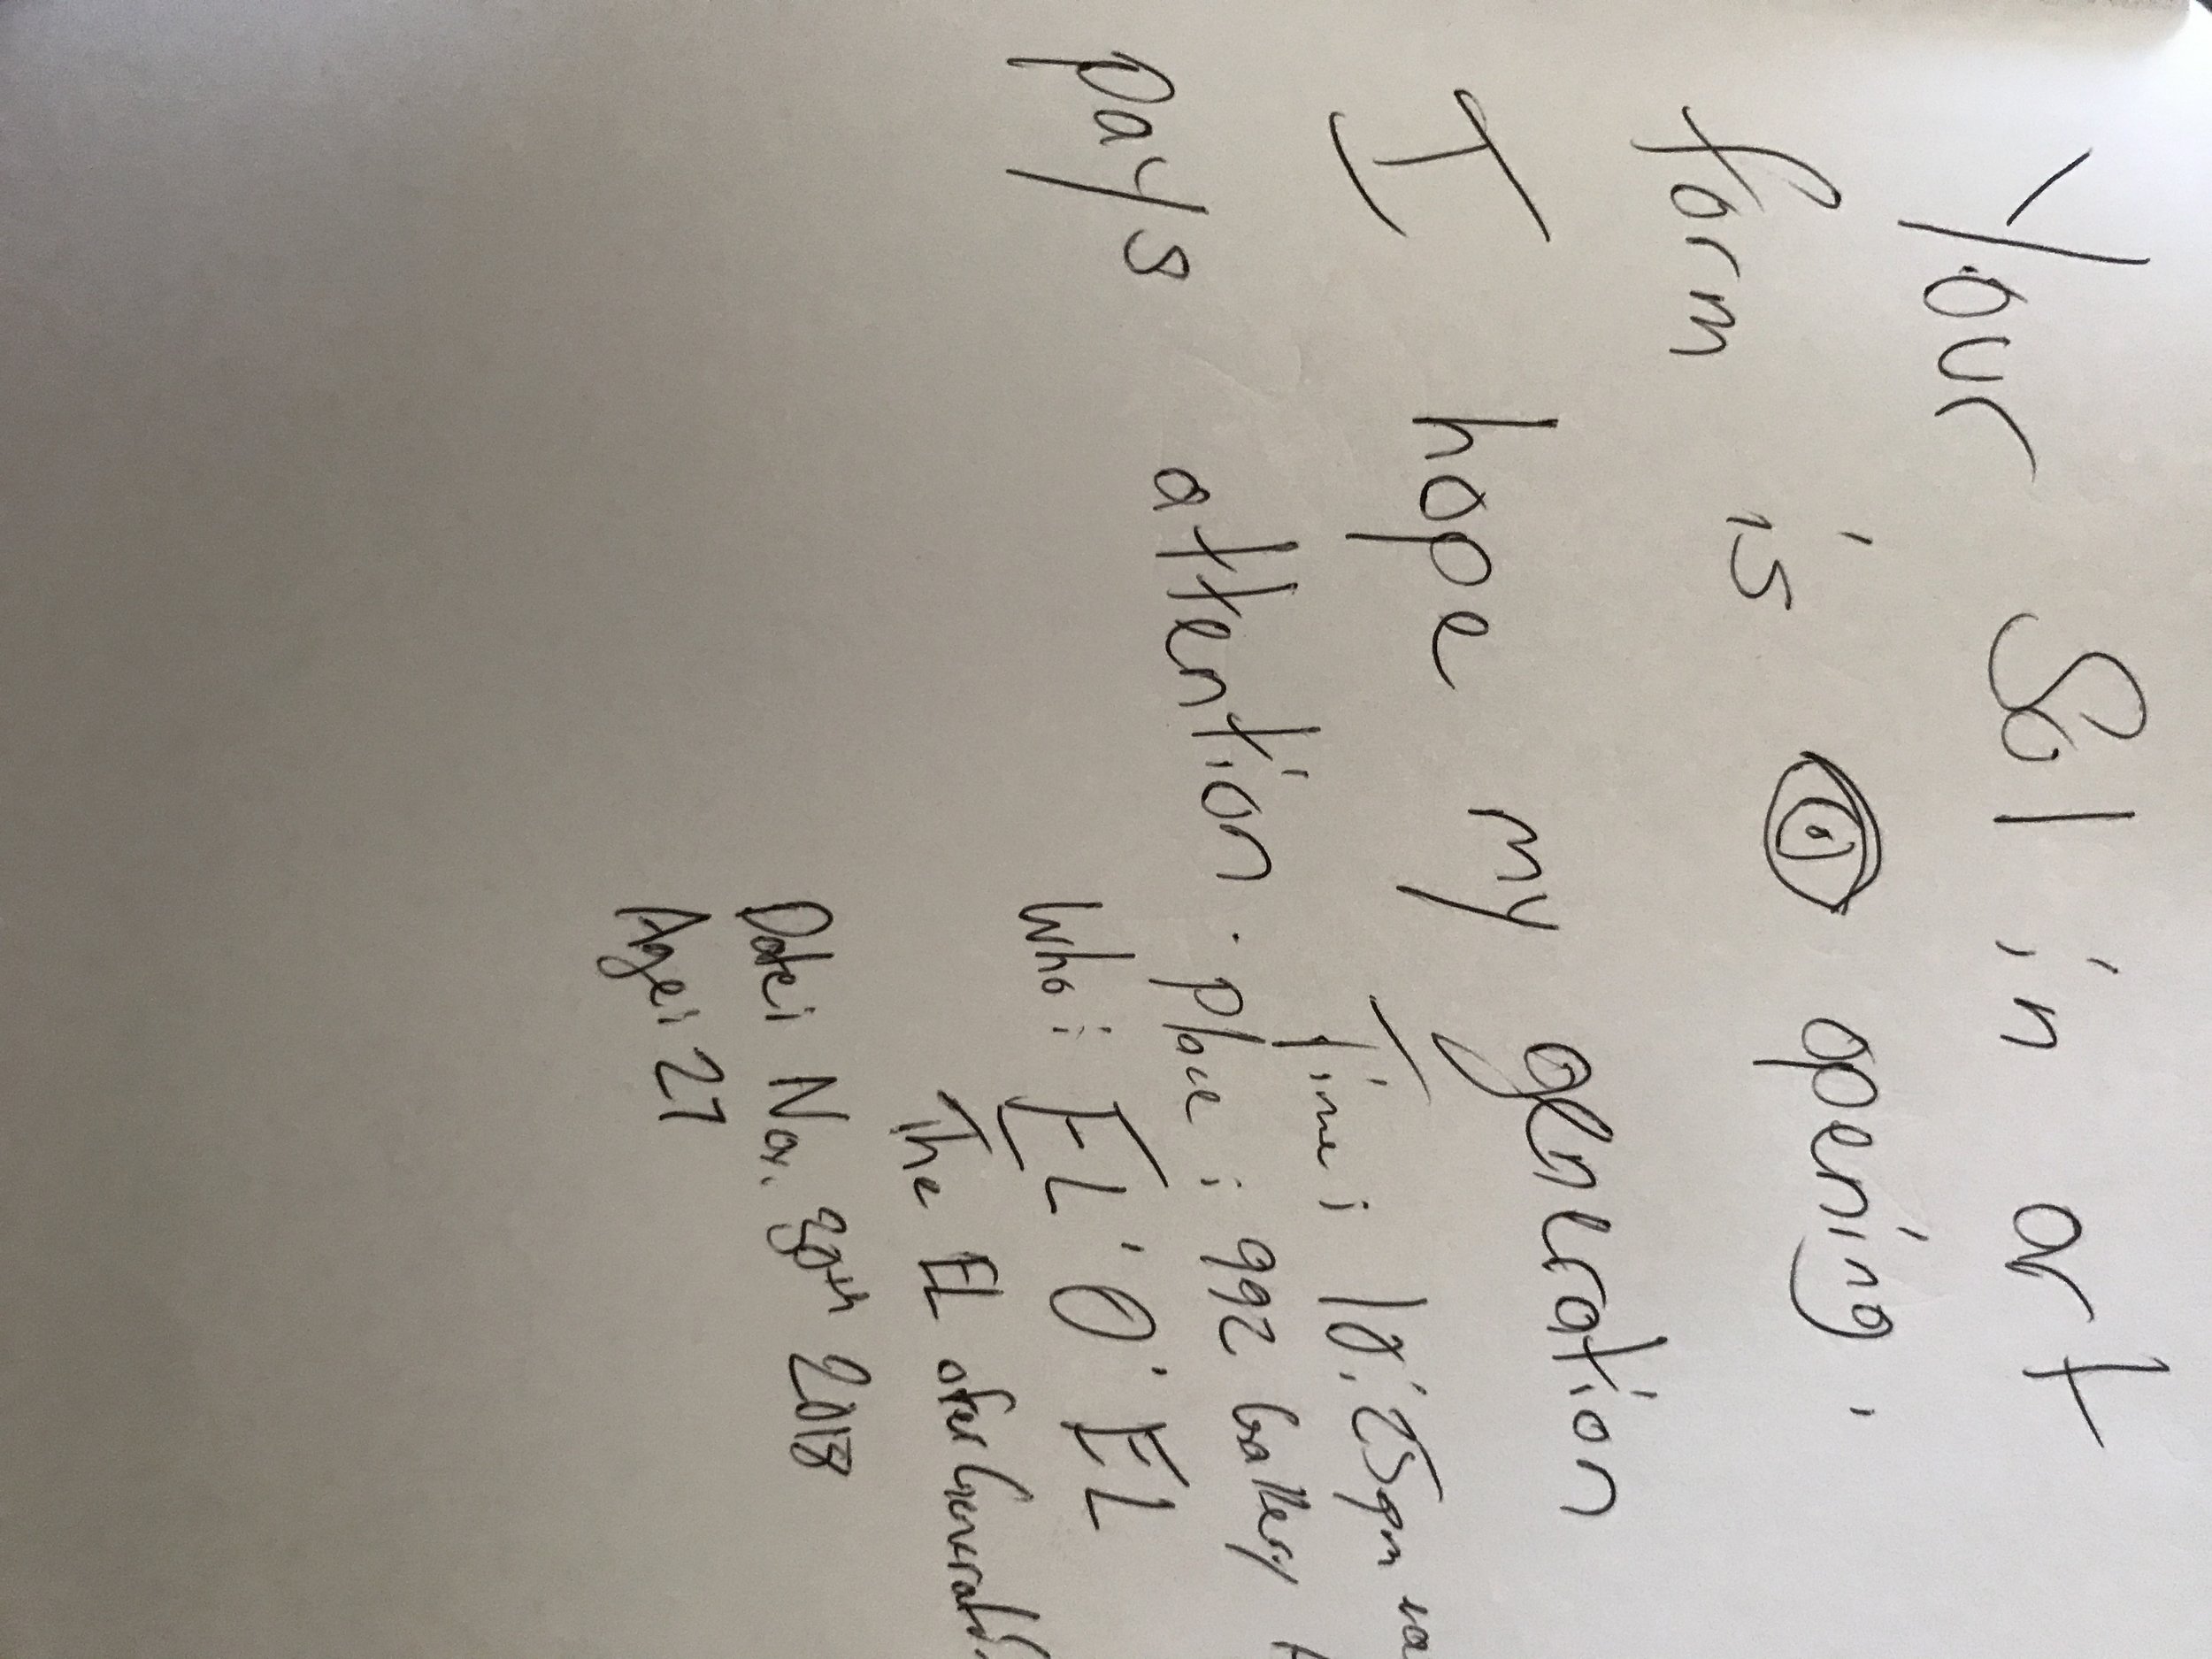 Your Sol in art
form is opening.
I hope my generation
pays attention.
Time: 10:25pm
Place: 992 Gallery
Who: EL'O'EL
The EL of
Date: Nov. 30th 2018
Age: 27